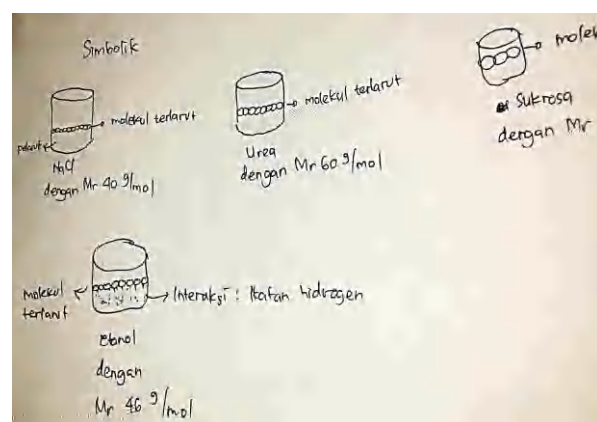 Simbolik
molekul terlarut
pelarut
NaCl
dengan Mr 40 g/mol
molekul terlarut
Urea
dengan Mr 60 g/mol
molek
Sukrosa
dengan Mr
molekul
terlarut
Interaksi : Ikatan hidrogen
etanol
dengan
Mr 46 g/mol